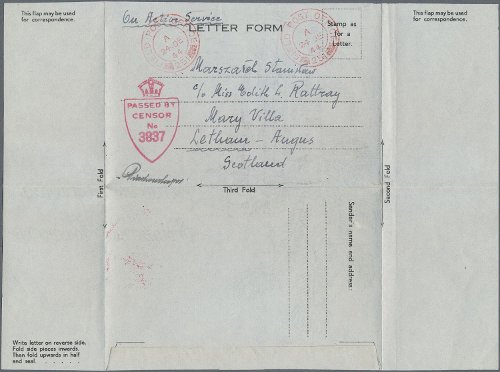 This flap may be used
for correspondence.
On Active Service
LETTER FORM
Stamp as
for a
Letter.
This flap may be used
for correspondence.
Marszałek Stanisław
c/o Miss Edith L. Rattray
Mary Villa
Letham - Angus
Scotland
PASSED BY
CENSOR
No
3837
First Fold
Third Fold
Second Fold
Sender's name and address:
Write letter on reverse side.
Fold side pieces inwards.
Then fold upwards in half
and seal.